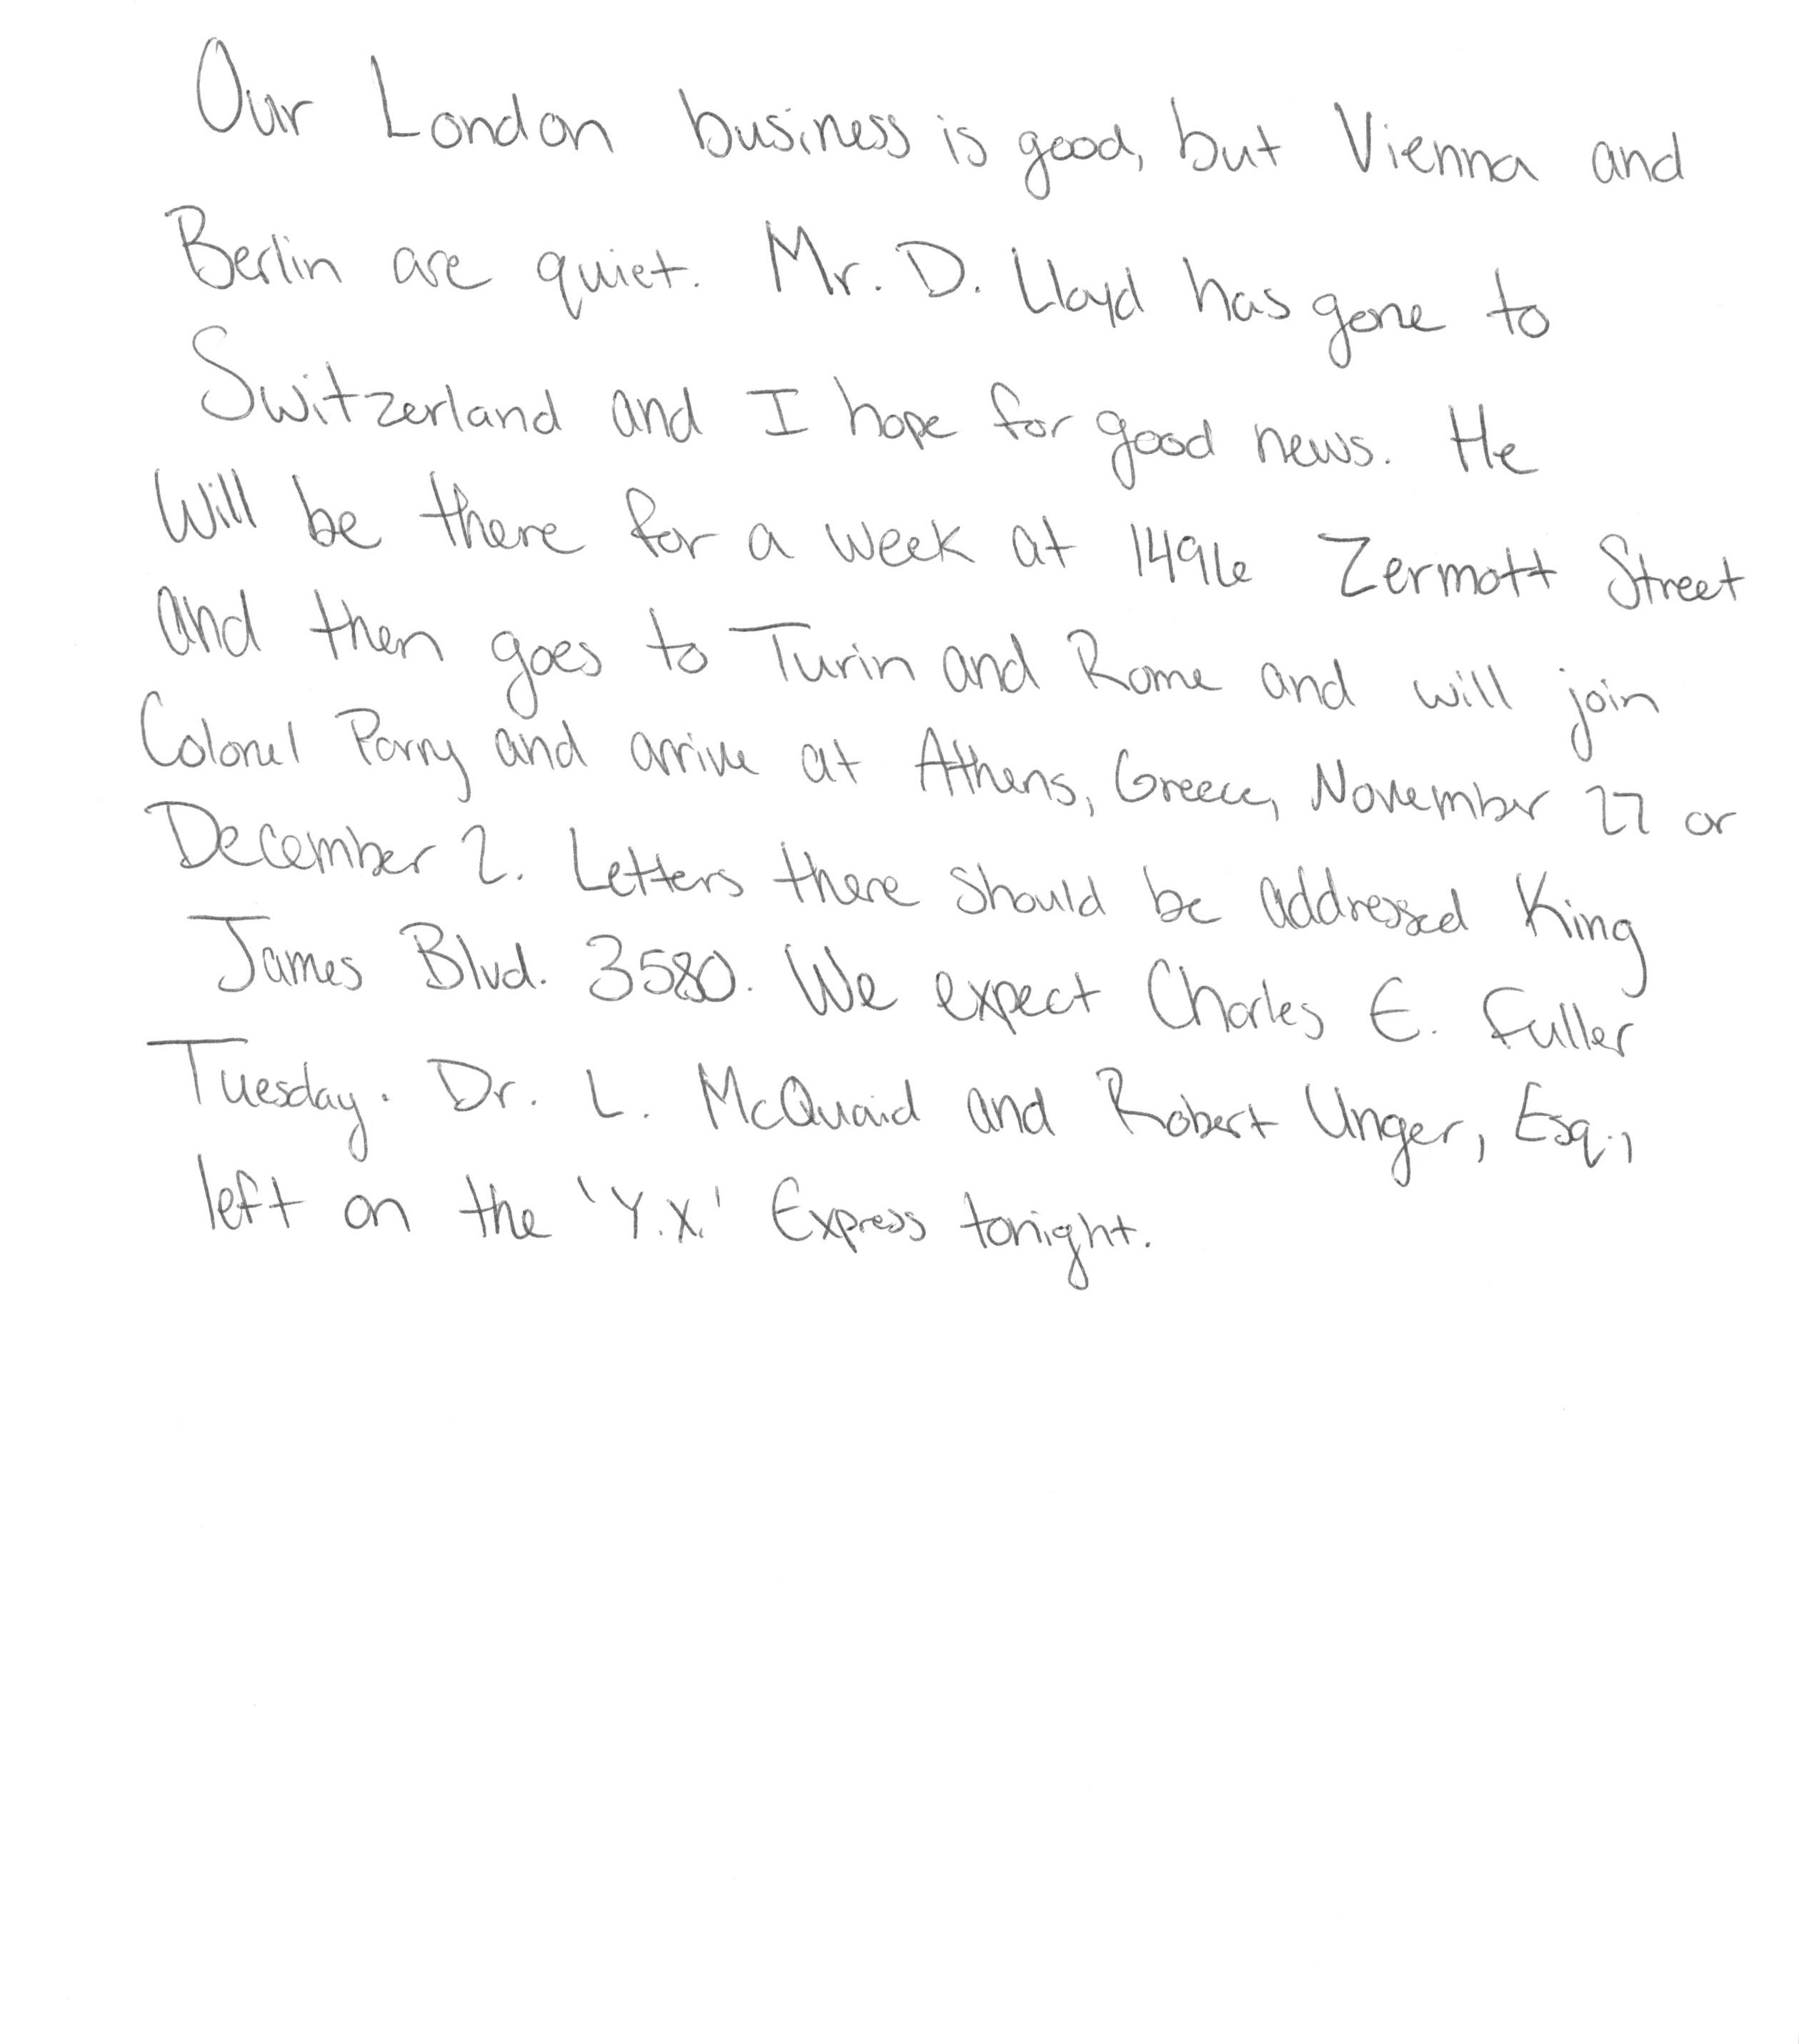 Our London business is good, but Vienna and
Berlin are quiet. Mr. D. Lloyd has gone to
Switzerland and I hope for good news. He
Will be there for a week at 1496 Zermott Street
and then goes to Turin and Rome and will join
Colonel Parry and arrive at Athens, Greece, November 27 or
December 2. Letters there should be addressed King
James Blvd. 3580. We expect Charles E. Fuller
Tuesday. Dr. L. McQuaid and Robert Unger, Esq.,
left on the 'Y.X.' Express tonight.